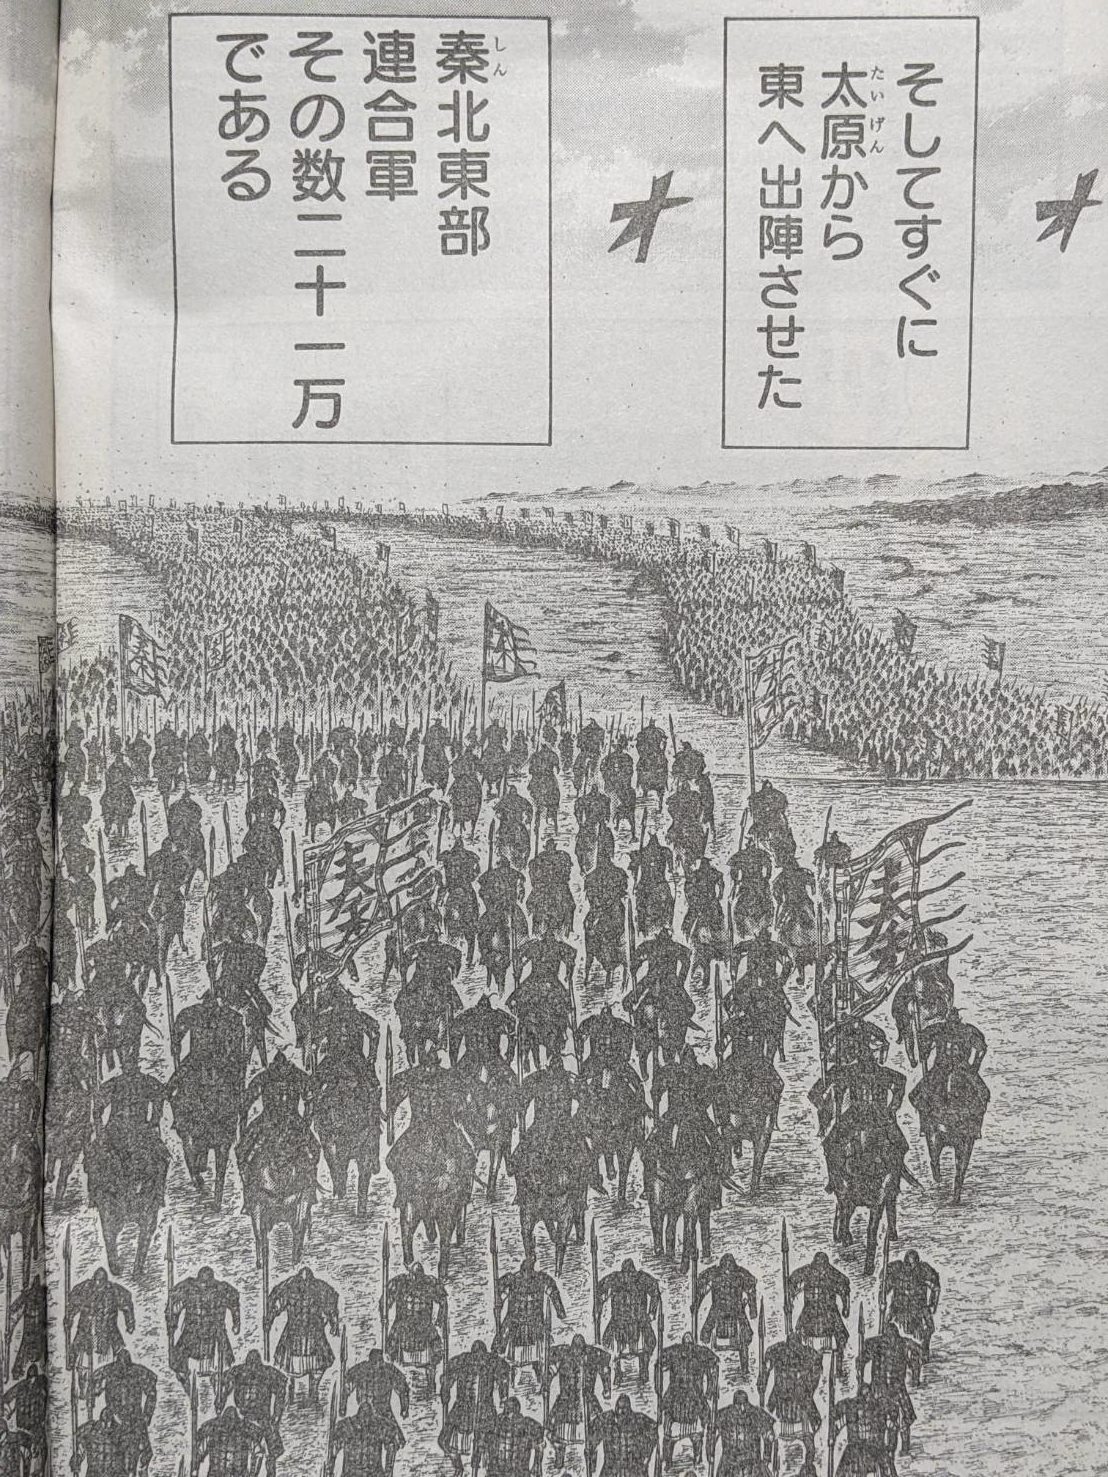 そしてすぐに
太原から
東へ出陣させた
秦北東部
連合軍
その数二十一万
である
オ
オ
秦
秦